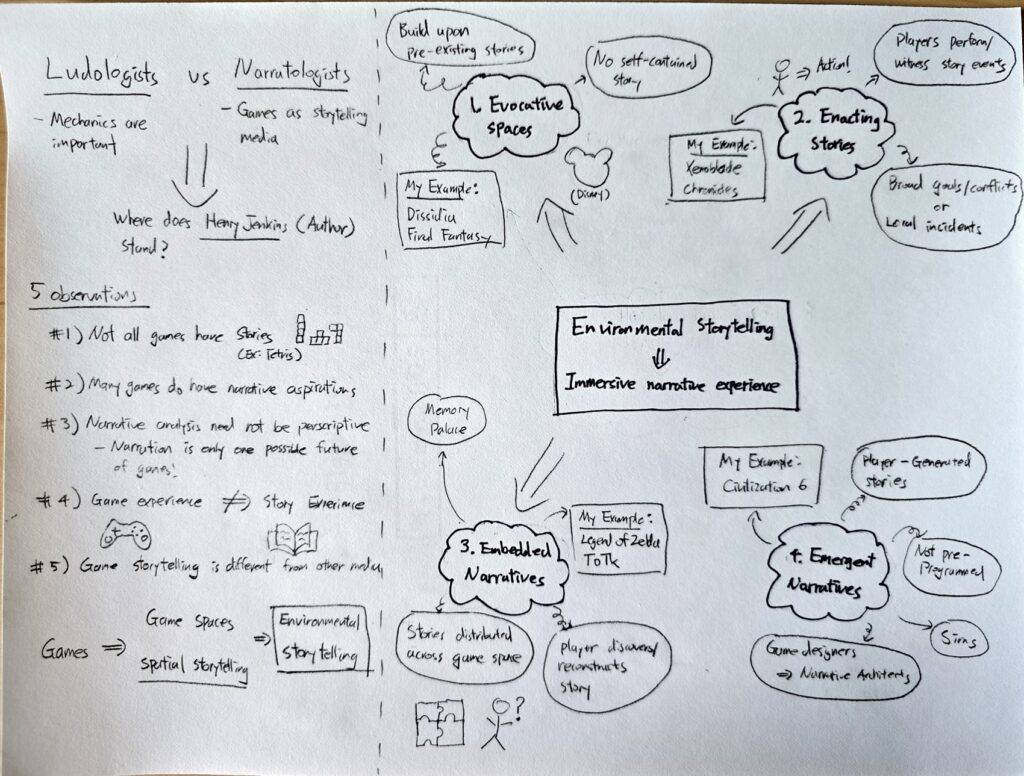 Ludologists vs Narratologists
- Mechanics are
important
- Games as storytelling
media
Where does Henry Jenkins (Author)
stand?
5 observations
#1) Not all games have stories
(Ex: Tetris)
#2) Many games do have narrative aspirations
#3) Narrative analysis need not be perscriptive
- Narration is only one possible future
of games!
#4) Game experience ≠> Story Experience
#5) Game storytelling is different from other media
Games ⇒
Game spaces
spatial storytelling
⇒
Environmental
storytelling
Build upon
pre-existing stories
No self-contained
story
1. Evocative
spaces
My Example:
Dissidia
Final Fantasy
(Disney)
Players perform/
witness story events
⇒ Action!
2. Enacting
Stories
My Example:
Xenoblade
Chronicles
Broad goals/conflicts
or
Local incidents
Environmental Storytelling
⇓
Immersive narrative experience
Memory
Palace
3. Embedded
Narratives
My Example:
Legend of Zelda
ToTK
Stories distributed
across game space
player discovers/
reconstructs
story
?
My Example:
Civilization 6
Player-Generated
stories
4. Emergent
Narratives
Not pre-
Programmed
Sims
Game designers
⇒ Narrative Architects